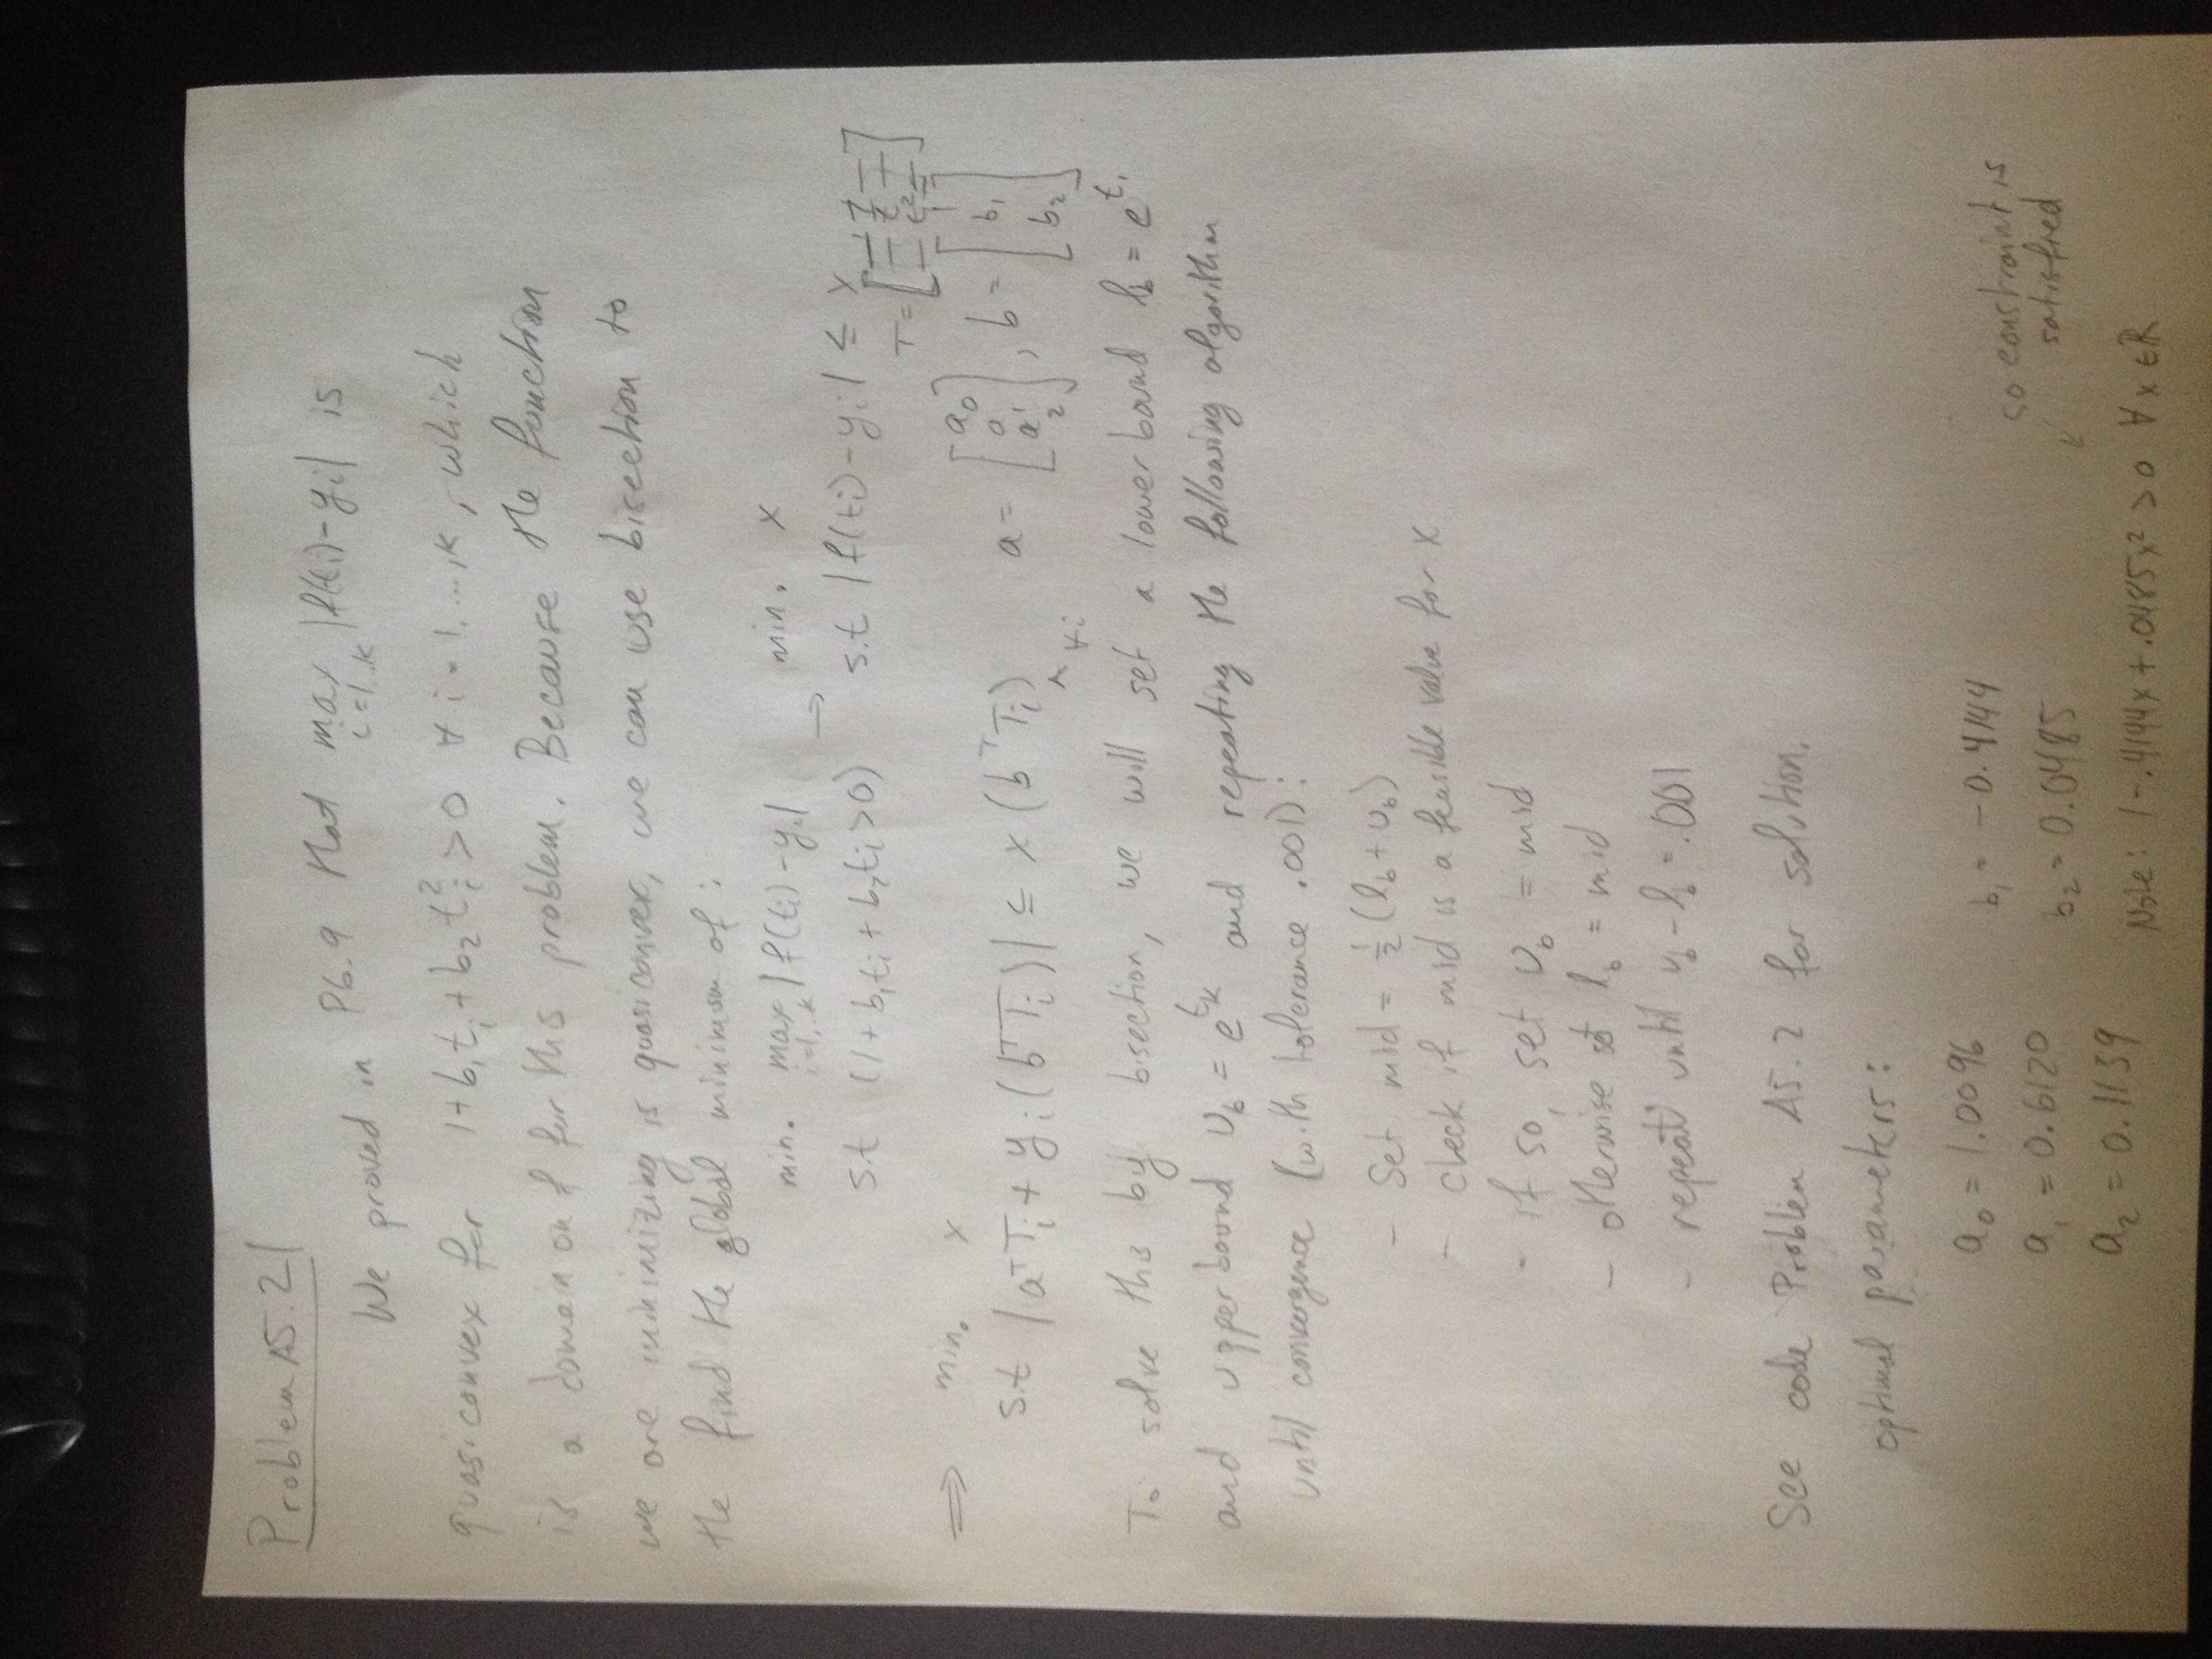 Problem A5.2
We proved in P6.9 that max |f(ti)-yi| is
i=1..k
quasiconvex for 1+b₁tᵢ+b₂tᵢ²>0 ∀ i=1,...,k, which
is a domain on f for this problem. Because the function
we are minimizing is quasiconvex, we can use bisection to
the find the global minimum of:
min. max |f(ti)-yi| → min. x
i=1,..k
s.t (1+b₁tᵢ+b₂tᵢ>0) s.t |f(ti)-yi| ≤ x
T = [— 1 — — t — — t² —]
⟹ min. x
s.t |aᵀTᵢ + yᵢ(bᵀTᵢ)| ≤ x(bᵀTᵢ) ∀i a = [a₀ a₁ a₂], b = [1 b₁ b₂]
To solve this by bisection, we will set a lower bound l_b = e^t₁
and upper bound U_b = e^t_k and repeating the following algorithm
until convergence (with tolerance .001):
- Set mid = ½(l_b+u_b)
- check if mid is a feasible value for x
- if so, set U_b = mid
- otherwise set l_b = mid
- repeat until u_b - l_b = .001
See code Problem A5.2 for solution.
optimal parameters:
a₀ = 1.0096 b₁ = -0.4144
a₁ = 0.6120 b₂ = 0.0485
a₂ = 0.1139
so constraint is
satisfied
Note: 1-.4144x+.0485x²>0 ∀ x∈ℝ